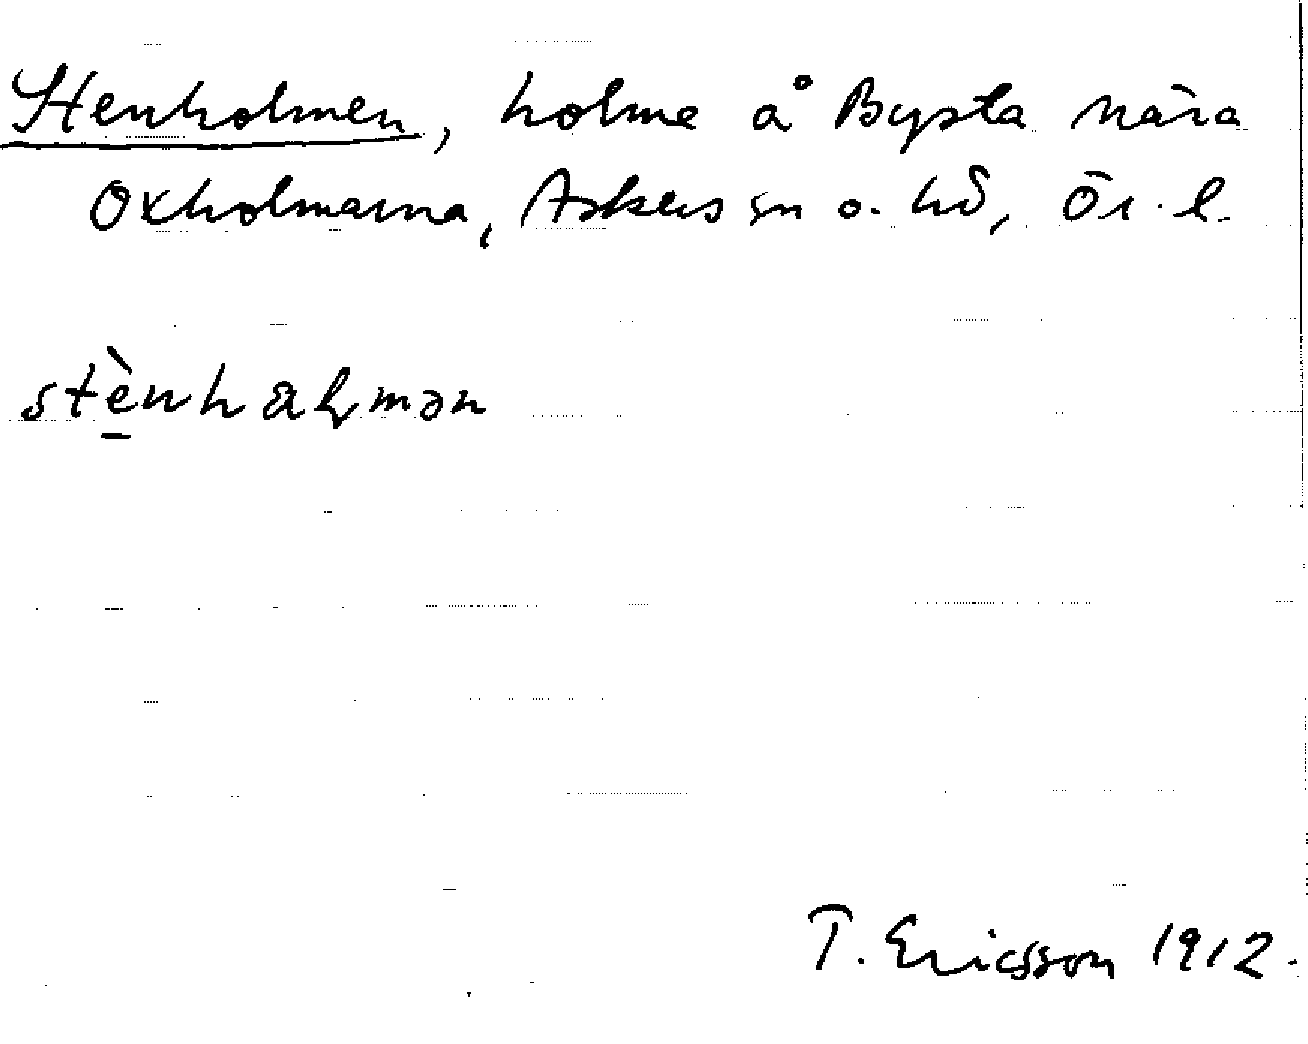 Stenholmen, holme å Bysta nära
Oxholmarna, Askers sn o. hd, Ör. l.
stènhaɬmən
T. Ericsson 1912.